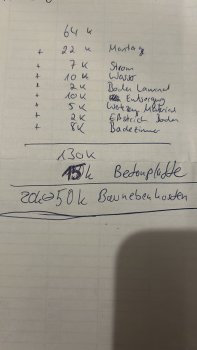 64 k
+ 22 k Montag
+ 7 k Strom
+ 10 k Wasser
+ 2 k Boden Laminat
+ 10 k Entsorgung
+ 5 k Material
+ 2 k Estrich Boden
+ 8 k Badezimmer
130 k
15 k Betonplatte
20k 50 k Baunebenkosten